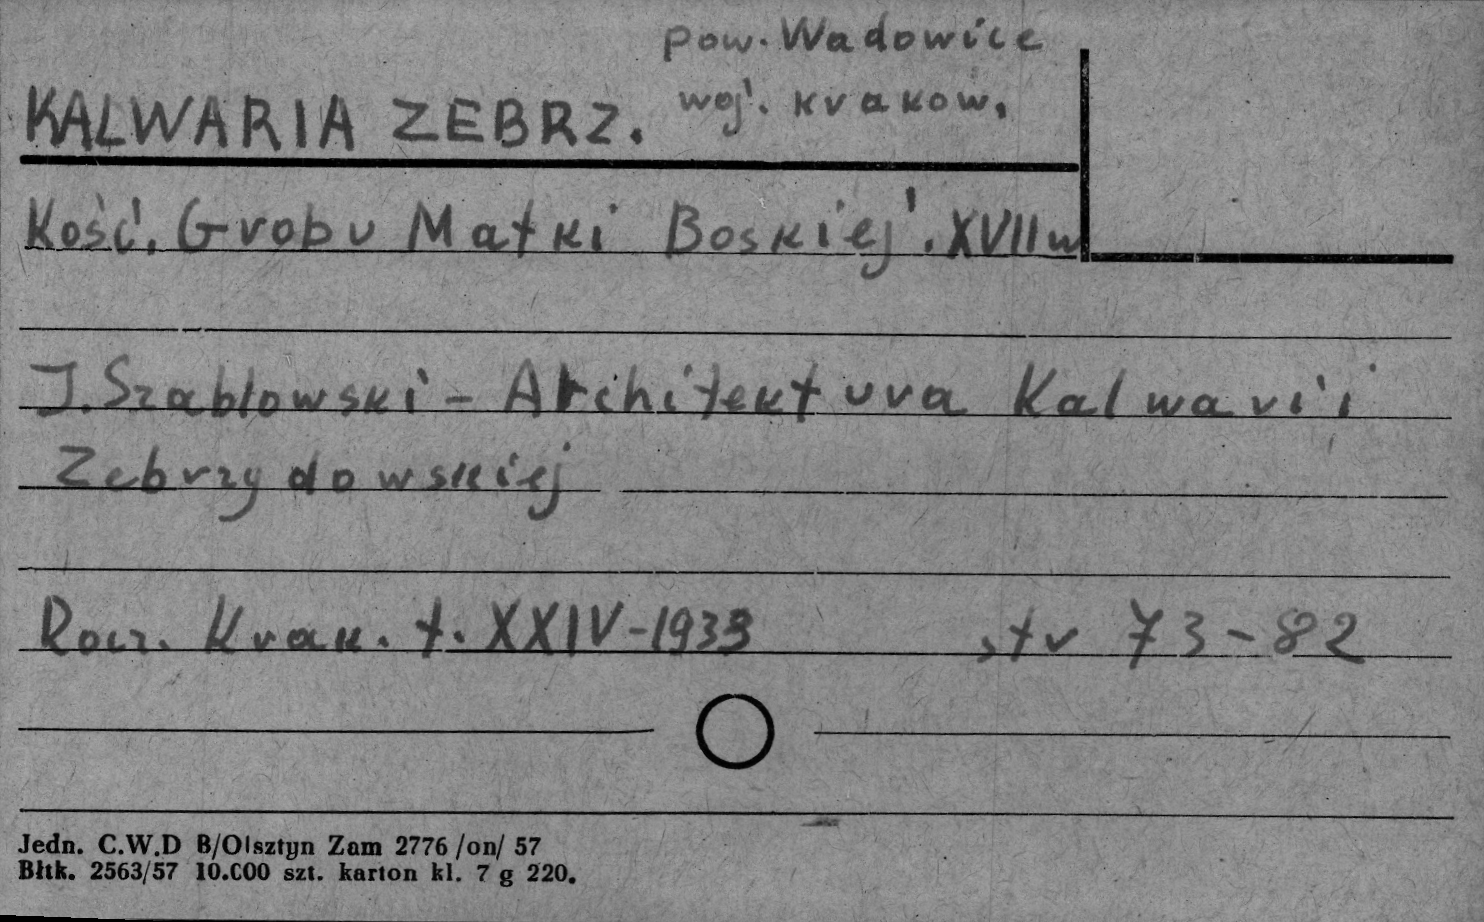 pow. Wadowice
KALWARIA ZEBRZ. woj. krakow.
Kość. Grobu Matki Boskiej. XVII w
J. Szabłowski - Architektura Kalwarii
Zebrzydowskiej
Rocz. Krak. t. XXIV-1933 str 73-82
Jedn. C.W.D B/Olsztyn Zam 2776 /on/ 57
Błtk. 2563/57 10.000 szt. karton kl. 7 g 220.